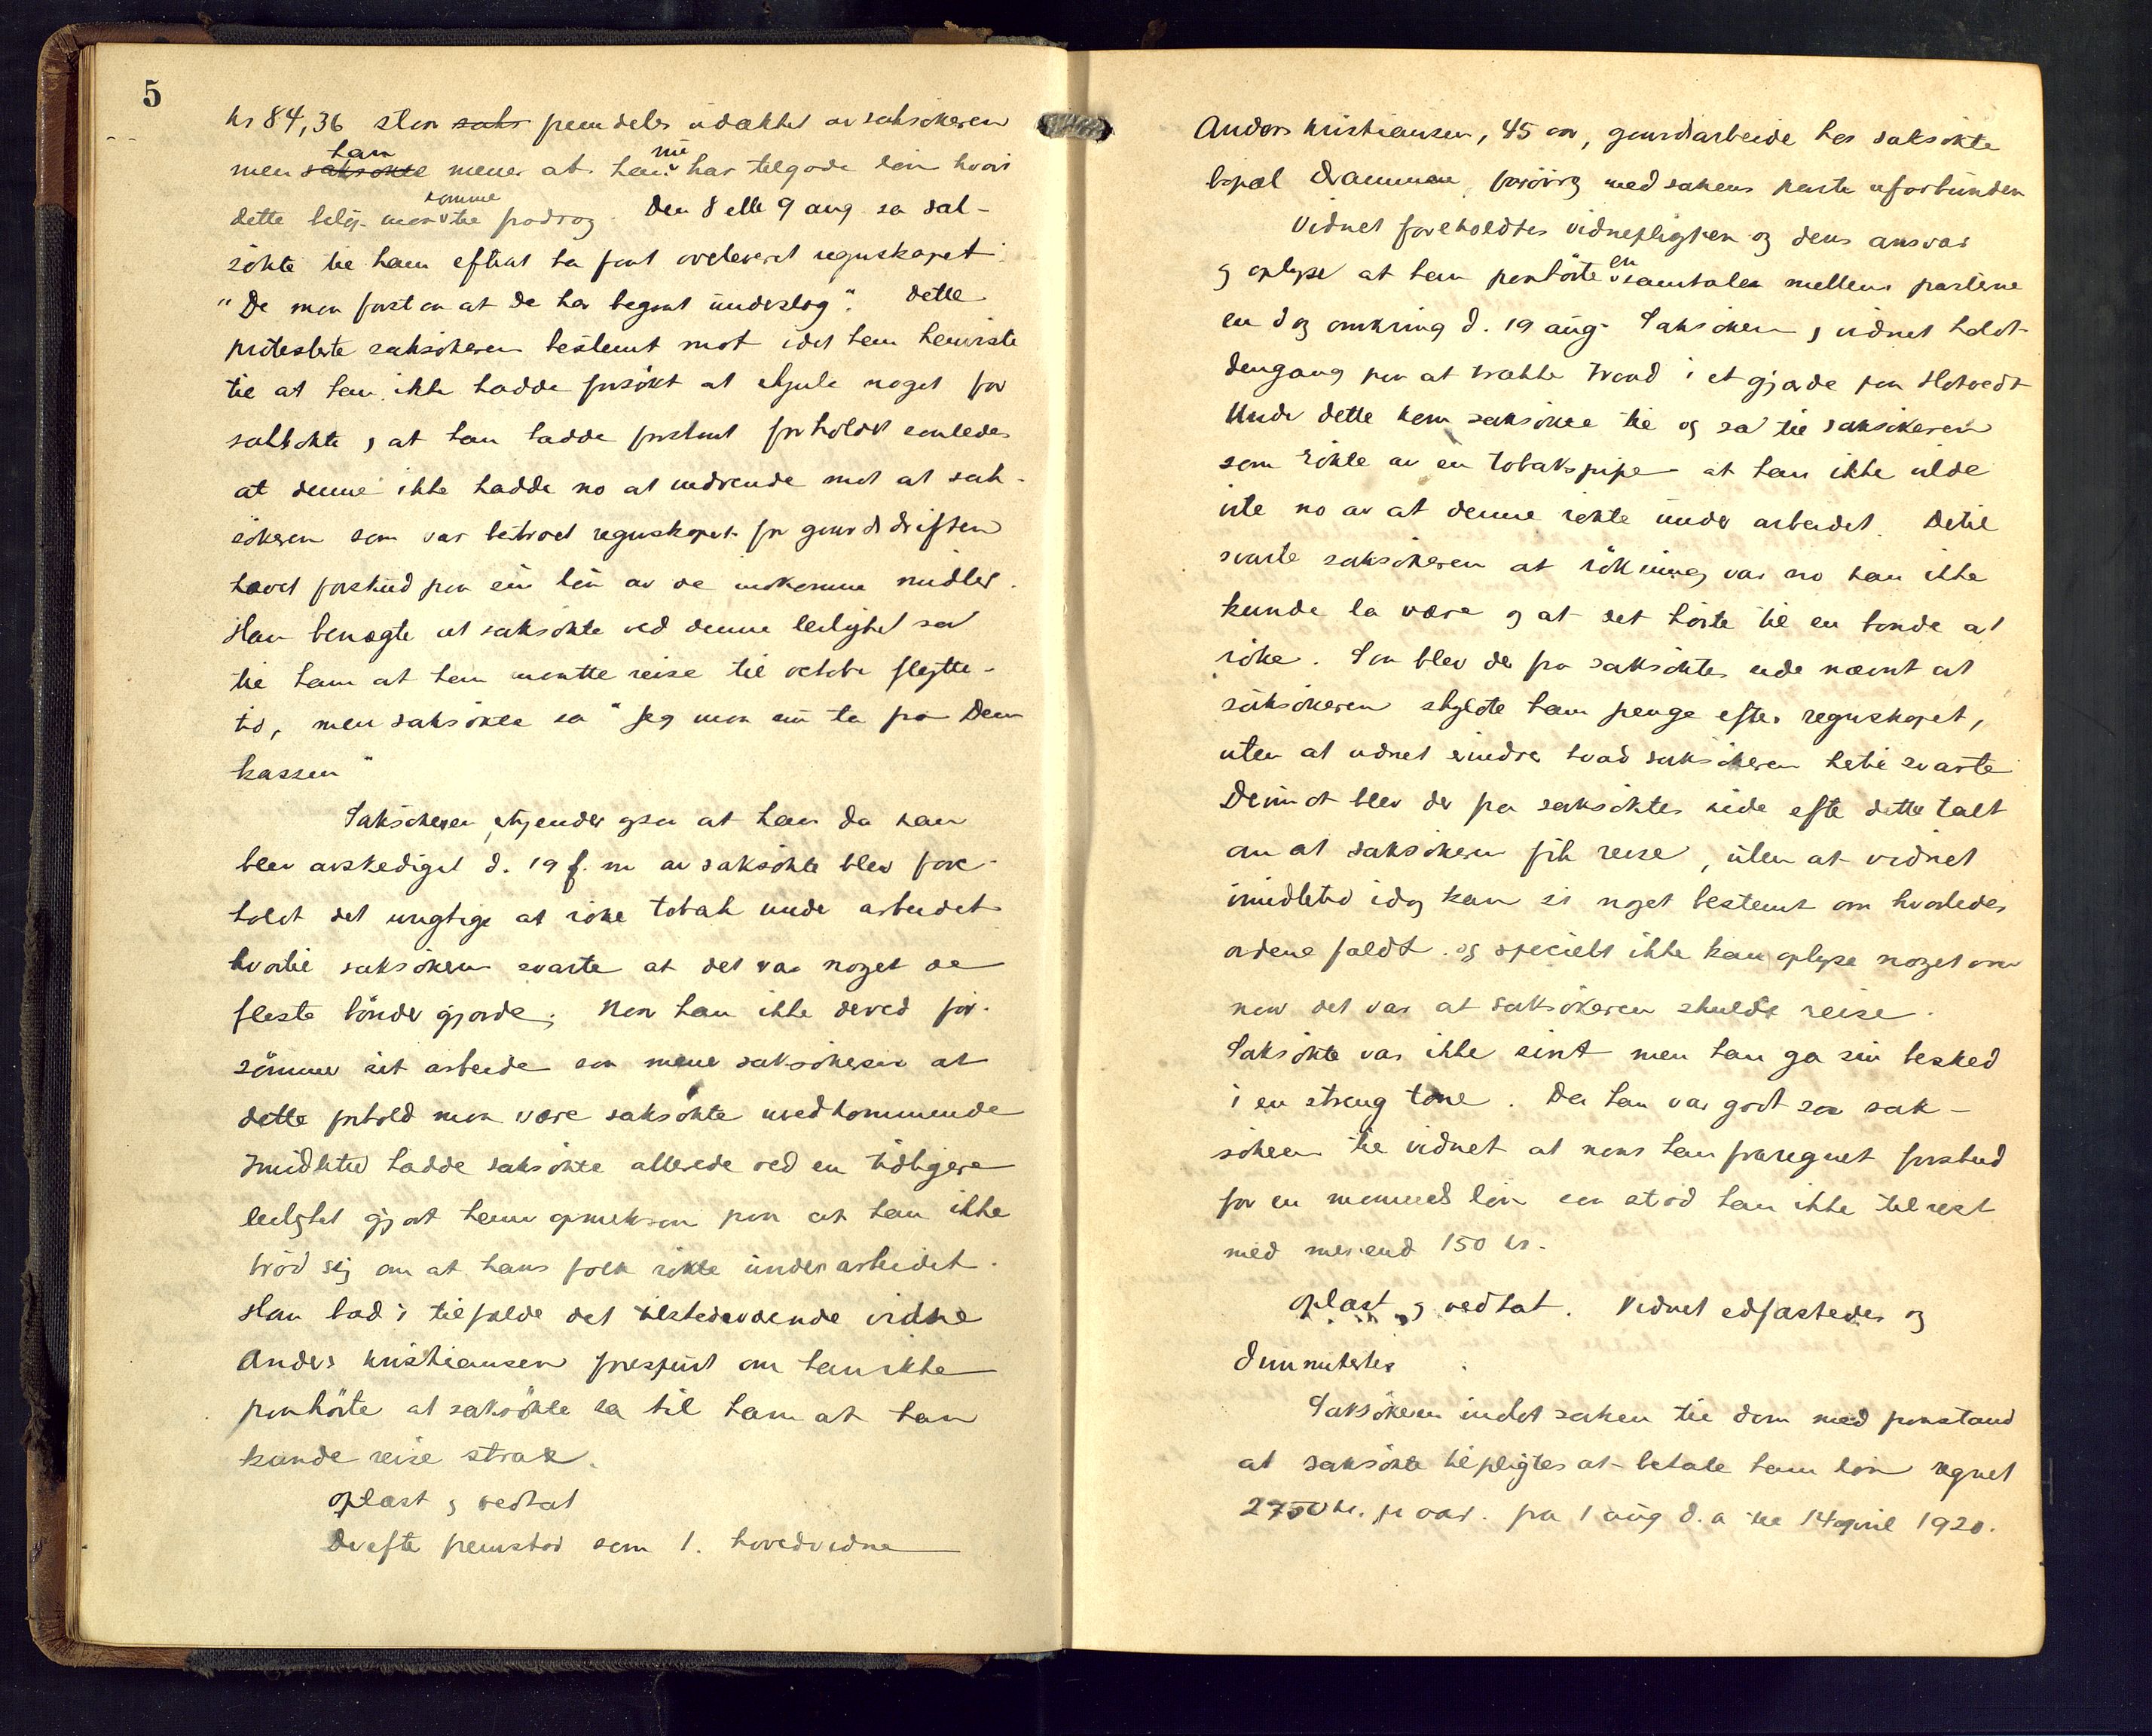 5
kr 84,36 staar saks fremdeles udækket av saksökeren
men saksökte han mener at han nu har tilgode lön hvori
dette belöp maatte komme fradrag. Den 8 elle 9 aug sa sak-
sökte til ham efterat ha faat overleveret regnskapet
"De maa forstaa at De har begaat underslag". Dette
protesterte saksökeren bestemt mot idet han henviste
til at han ikke hadde forsökt at skjule noget for
saksökte, at han hadde forstaat forholdet saaledes
at denne ikke hadde no at indvende mot at sak-
sökeren som var betrodd regnskapet for gaardsdriften
hævet forskud paa sin lön av de indkomne midler.
Han benægte at saksökte ved denne leilighet sa
til ham at han maatte reise til october flytte-
tid, men saksökte sa "Jeg maa nu ta fra Dem
kassen"
Saksökeren erkjender ogsaa at han da han
blev avskediget d. 19 f. m av saksökte blev fore-
holdt det urigtige at röke tobak under arbeidet
hvortil saksökeren svarte at det var noget de
fleste bönder gjorde. Naar han ikke derved for-
sömmer sit arbeide saa mener saksökeren at
dette forhold maa være saksökte uvedkommende
Imidlertid hadde saksökte allerede ved en tidligere
leilighet gjort ham opmerksom paa at han ikke
bröd sig om at hans folk rökte under arbeidet.
Han bad i tilfælde det tilstedeværende vidne
Anders Kristiansen forespurt om han ikke
paahörte at saksökte sa til ham at han
kunde reise strax.
Oplæst og vedtat
Derefter fremstod som 1. hovedvidne
Anders Kristiansen, 45 aar, gaardsarbeide hos saksökte
bopæl Drammen, forövrig med sakens parter uforbunden
Vidnet foreholdtes vidnepligten og dens ansvar
og oplyse at han paahörte en samtalen mellem parterne
en dag omkring d. 19 aug. Saksökeren og vidnet holdt
dengang paa at trække traad i et gjærde paa Hotvedt
Under dette kom saksökte til og sa til saksökeren
som rökte av en tobakspipe at han ikke vilde
vite no av at denne rökte under arbeidet. Dertil
svarte saksökeren at rökning var no han ikke
kunde la være og at det hörte til en bonde at
röke. Saa blev der fra saksöktes side nævnt at
saksökeren skyldte ham penge efter regnskapet,
uten at vidnet erindrer hvad saksökeren hertil svarte
Derimot blev der fra saksöktes side efter dette talt
om at saksökeren fik reise, uten at vidnet
imidlertid idag kan si noget bestemt om hvorledes
ordene faldt og specielt ikke kan oplyse noget om
naar det var at saksökeren skulde reise.
Saksökte var ikke sint men han ga sin besked
i en streng tone. Da han var gaat sa sak-
sökeren til vidnet at naar han fraregnet forskud
for en maaneds lön saa stod han ikke til rest
med mer end 150 kr.
Oplæst og vedtat. Vidnet edfæstedes og
dimmitertes
Saksökeren indlot saken til dom med paastand
at saksökte tilpligtes at betale ham lön regnet
2750 kr. pr aar. fra 1 aug d. a til 14 april 1920.